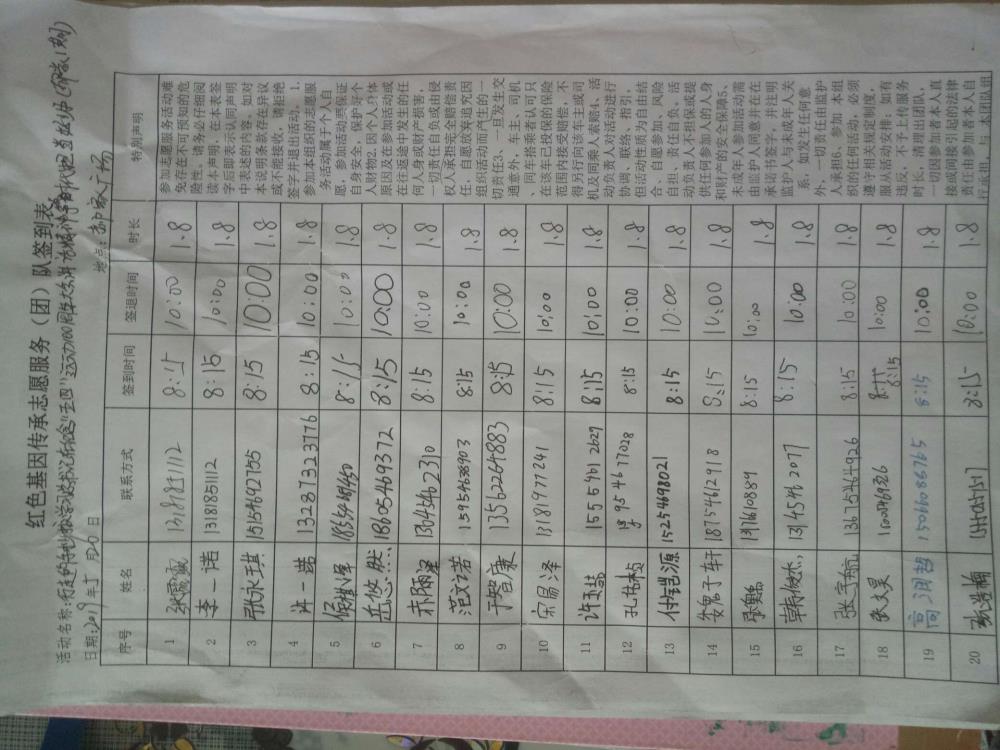 红色基因传承志愿服务（团）队签到表
活动名称:
日期:2019年5月 日 地点:
序号 姓名 联系方式 签到时间 签退时间 时长 特别声明
1 13181851112 8:15 10:00 1.8
2 李一诺 13181851112 8:15 10:00 1.8
3 张永琪 15154692755 8:15 10:00 1.8
4 许一诺 13287323776 8:15 10:00 1.8
5 8:15 10:00 1.8
6 岳悠然 18605469372 8:15 10:00 1.8
7 13045462310 8:15 10:00 1.8
8 范文若 13954638903 8:15 10:00 1.8
9 于智康 13562264883 8:15 10:00 1.8
10 宋易泽 13189977241 8:15 10:00 1.8
11 15554612629 8:15 10:00 1.8
12 8:15 10:00 1.8
13 付铠源 15254698021 8:15 10:00 1.8
14 18754612918 8:15 10:00 1.8
15 13176108889 8:15 10:00 1.8
16 13145462077 8:15 10:00 1.8
17 张宇航 13675464926 8:15 10:00 1.8
18 张文昊 8:15 10:00 1.8
19 高润哲 15066086765 8:15 10:00 1.8
20 8:15 10:00 1.8
参加志愿服务活动难
免存在不可预知的危
险性。请务必仔细阅
读本声明，在本表签
字后即表示认同声明
中表述的内容。如对
本说明条款存在异议
或不能接收，请拒绝
签字并退出活动。1、
参加本组织的志愿服
务活动属于个人自
愿，参加活动需保证
自身安全，保护好个
人财物2、因个人身体
原因及在参加活动或
在往返途中发生的任
何人身或财产损害，
一切责任自负或由侵
权人承担完全赔偿责
任，自愿放弃追究因
组织活动而产生的一
切责任3、一旦发生交
通意外，车主、司机
、同行搭乘者认可只
在该车已投保的保险
范围内接受赔偿，不
得另行向该车主或司
机及同乘人索赔4、活
动负责人对活动进行
协调、联络、指引，
但活动性质为自由结
合，自愿参加，风险
自担、责任自负。活
动负责人不担保或提
供任何参加人的人身
和财产的安全保障5、
未成年人参加活动需
由监护人同意并在在
承诺书签字，并注明
监护人与未成年人关
系，如发生任何意
外，一切责任由监护
人承担6、参加本组
织的任何活动，必须
遵守相关规定制度，
服从活动安排；如有
违反，不予上传服务
时长，清理出团队，
一切因参与者本人直
接或间接引起的法律
责任由参与者本人自
行承担，与本团队组